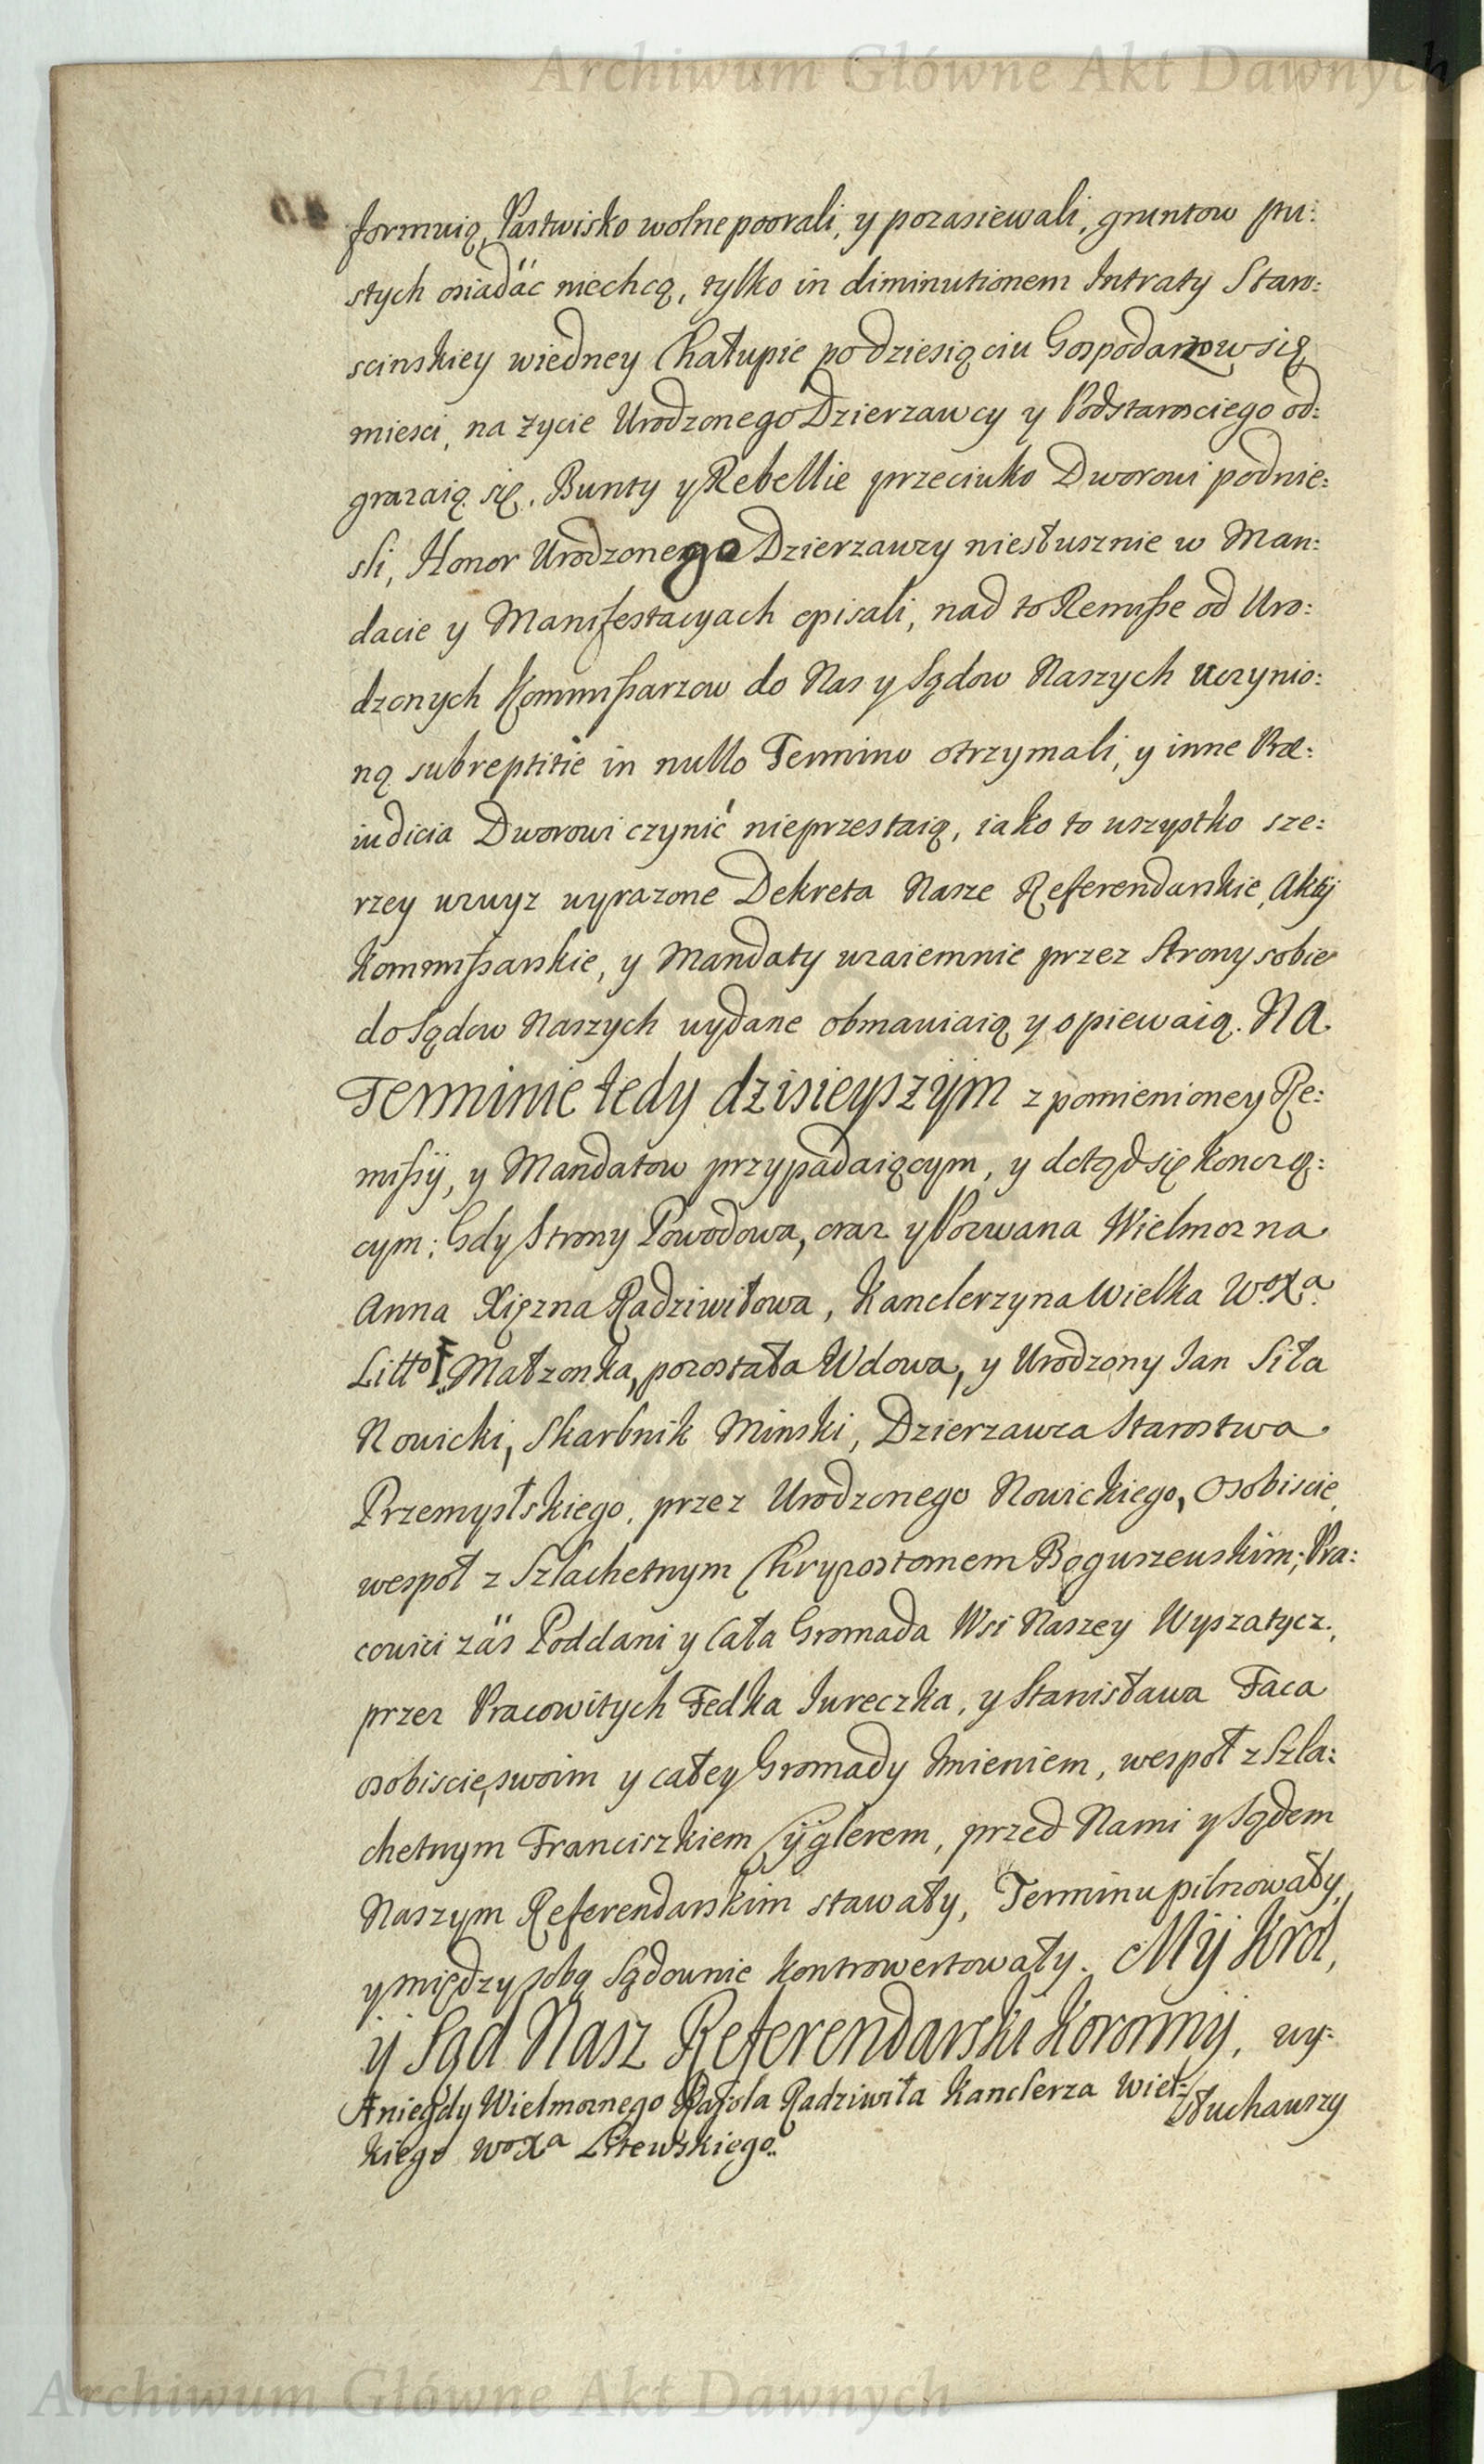 Archiwum Główne Akt Dawnych
formuią, Pastwisko wolne poorali, y pozasiewali, gruntow pu:
stych osiadäć niechcą, tylko in diminutionem Intraty Staro:
scinskiey wiedney Chałupie po dziesiąciu Gospodarzow się
miesci, na życie Urodzonego Dzierzawcy y Podstarosciego od:
grazaią się, Bunty y Rebellie przeciwko Dworowi podnie:
sli, Honor Urodzonego Dzierzawcy niesłusznie w Man:
dacie y Manifestacyach opisali, nad to Remisse od Uro:
dzonych Kommissarzow do Nas y Sądow Naszych uczynio:
ną subreptitie in nullo Termino otrzymali, y inne Præ:
iudicia Dworowi czynić nieprzestaią, iako to wszystko sze:
rzey wzwyz wyrazone Dekreta Nasze Referendarskie, Akty
Kommissarskie, y Mandaty wzaiemnie przez Strony sobie
do Sądow Naszych wydane obmawiaią y opiewaią. Na
Terminie tedy dzisieyszÿm z pomienioney Re:
missÿ, y Mandatow przypadaiącym, y dotąd się konczą:
cym; Gdy Strony Powodowa, oraz y Pozwana Wielmozna
Anna Xięzna Radziwiłowa, Kanclerzyna Wielka W.oX.a
Litto Małzonka, pozostała Wdowa, y Urodzony Jan Siła
Nowicki, Skarbnik Minski, Dzierzawca Starostwa
Przemyslskiego, przez Urodzonego Nowickiego, Osobiscie,
wespoł z Szlachetnym Chryzostomem Boguszewskim; Pra:
cowici zäs Poddani y Cała Gromada Wsi Naszey Wyszatycz,
przez Pracowitych Fedka Jureczka, y Stanisława Faca
osobiscie, swoim y całey Gromady Imieniem, wespoł z Szla:
chetnym Franciszkiem Cÿglerem, przed Nami y Sądem
Naszym Referendarskim stawały, Terminu pilnowały,
y między sobą Sądownie kontrowertowały. Mÿ Krol,
ÿ Sąd Nasz Referendarski Koronnÿ, wy:
słuchawszy
Aniegdy Wielmoznego Karola Radziwiła Kanclerza Wiel:
kiego WoXa Litewskiego.
Archiwum Główne Akt Dawnych